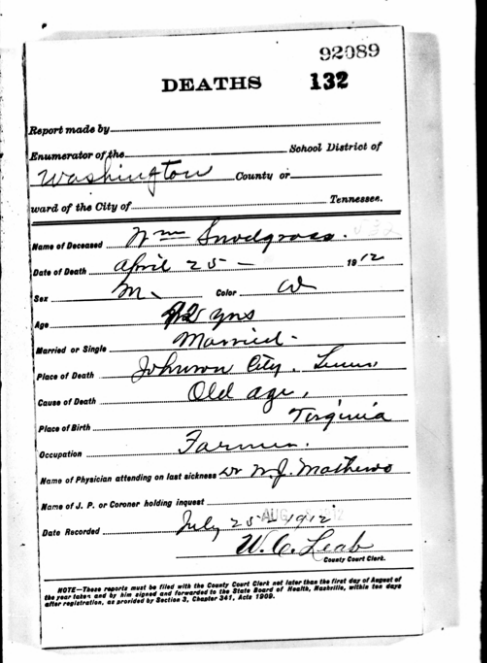 92089
DEATHS 132
Report made by
Enumerator of the School District of
Washington County or
ward of the City of Tennessee.
Name of Deceased Wm Snodgrass.
Date of Death April 25 - 1912
Sex M. Color W
Age yrs
Married or Single Married -
Place of Death Johnson City, Tenn.
Cause of Death Old age,
Place of Birth Virginia
Occupation Farmer.
Name of Physician attending on last sickness Dr W.J. Mathews
Name of J. P. or Coroner holding inquest
Date Recorded July 25 - 1912
W. C. Leab
County Court Clerk.
NOTE—These reports must be filed with the County Court Clerk not later than the first day of August of
the year taken and by him signed and forwarded to the State Board of Health, Nashville, within ten days
after registration, as provided by Section 3, Chapter 341, Acts 1909.